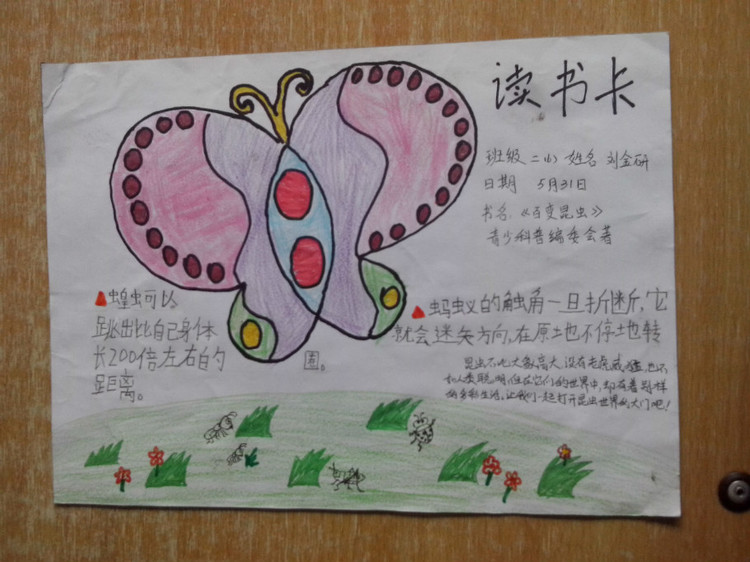 读书卡
班级 二(1) 姓名 刘金研
日期 5月31日
书名:《百变昆虫》
青少科普编委会著
蝗虫可以
跳出比自己身体
长200倍左右的
距离。
圆。
蚂蚁的触角一旦折断,它
就会迷失方向,在原土也不停土地转
昆虫不比大象高大,没有老虎威猛,也不
如人类聪明,但在它们的世界中,却有着别样
的多彩生活,让我们一起打开昆虫世界的大门吧!